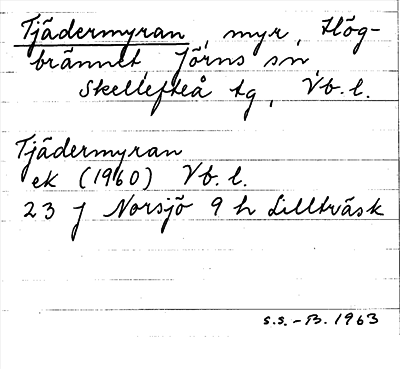 Tjädermyran, myr, Hög-
brännet, Jörns sn,
Skellefteå tg, Vb. l.
Tjädermyran
ek (1960) Vb. l.
23 J Norsjö 9 h Lillträsk
S.S.-B. 1963